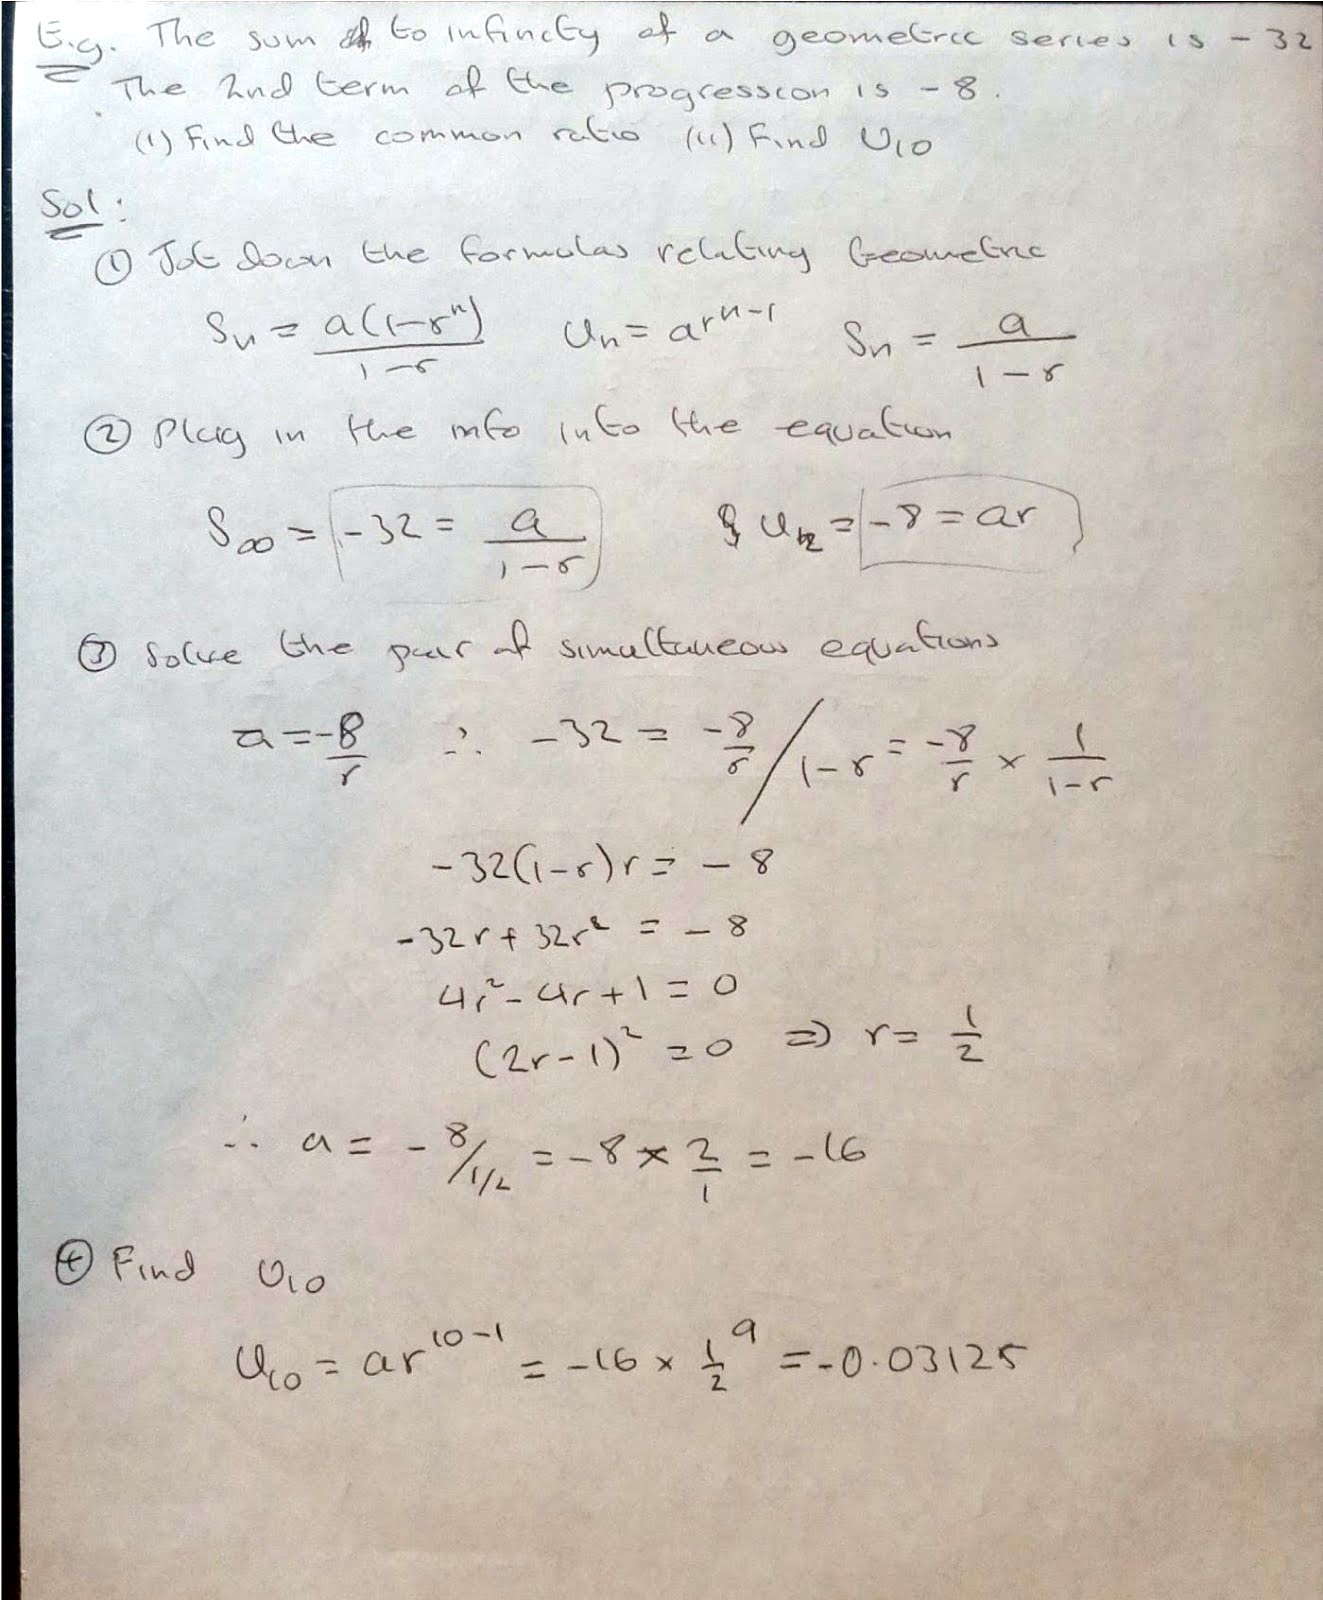 E.g. The sum to infinity of a geometric series is -32
The 2nd term of the progression is -8.
(i) Find the common ratio (ii) Find U10
Sol:
① Jot down the formulas relating Geometric
Sn = a(1-r^n)/(1-r)   Un = ar^(n-1)   Sn = a/(1-r)
② Plug in the info into the equation
S∞ = -32 = a/(1-r)   & U2 = -8 = ar
③ Solve the pair of simultaneous equations
a = -8/r   ∴ -32 = -8/r / 1-r = -8/r × 1/(1-r)
-32(1-r)r = -8
-32r + 32r² = -8
4r² - 4r + 1 = 0
(2r-1)² = 0 ⇒ r = 1/2
∴ a = -8/1/2 = -8 × 2/1 = -16
④ Find U10
U10 = ar^(10-1) = -16 × 1/2^9 = -0.03125